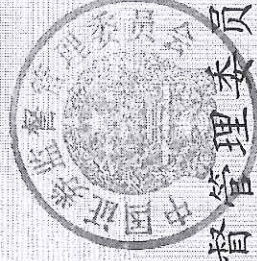 中国证券监督管理委员会
督管理委员